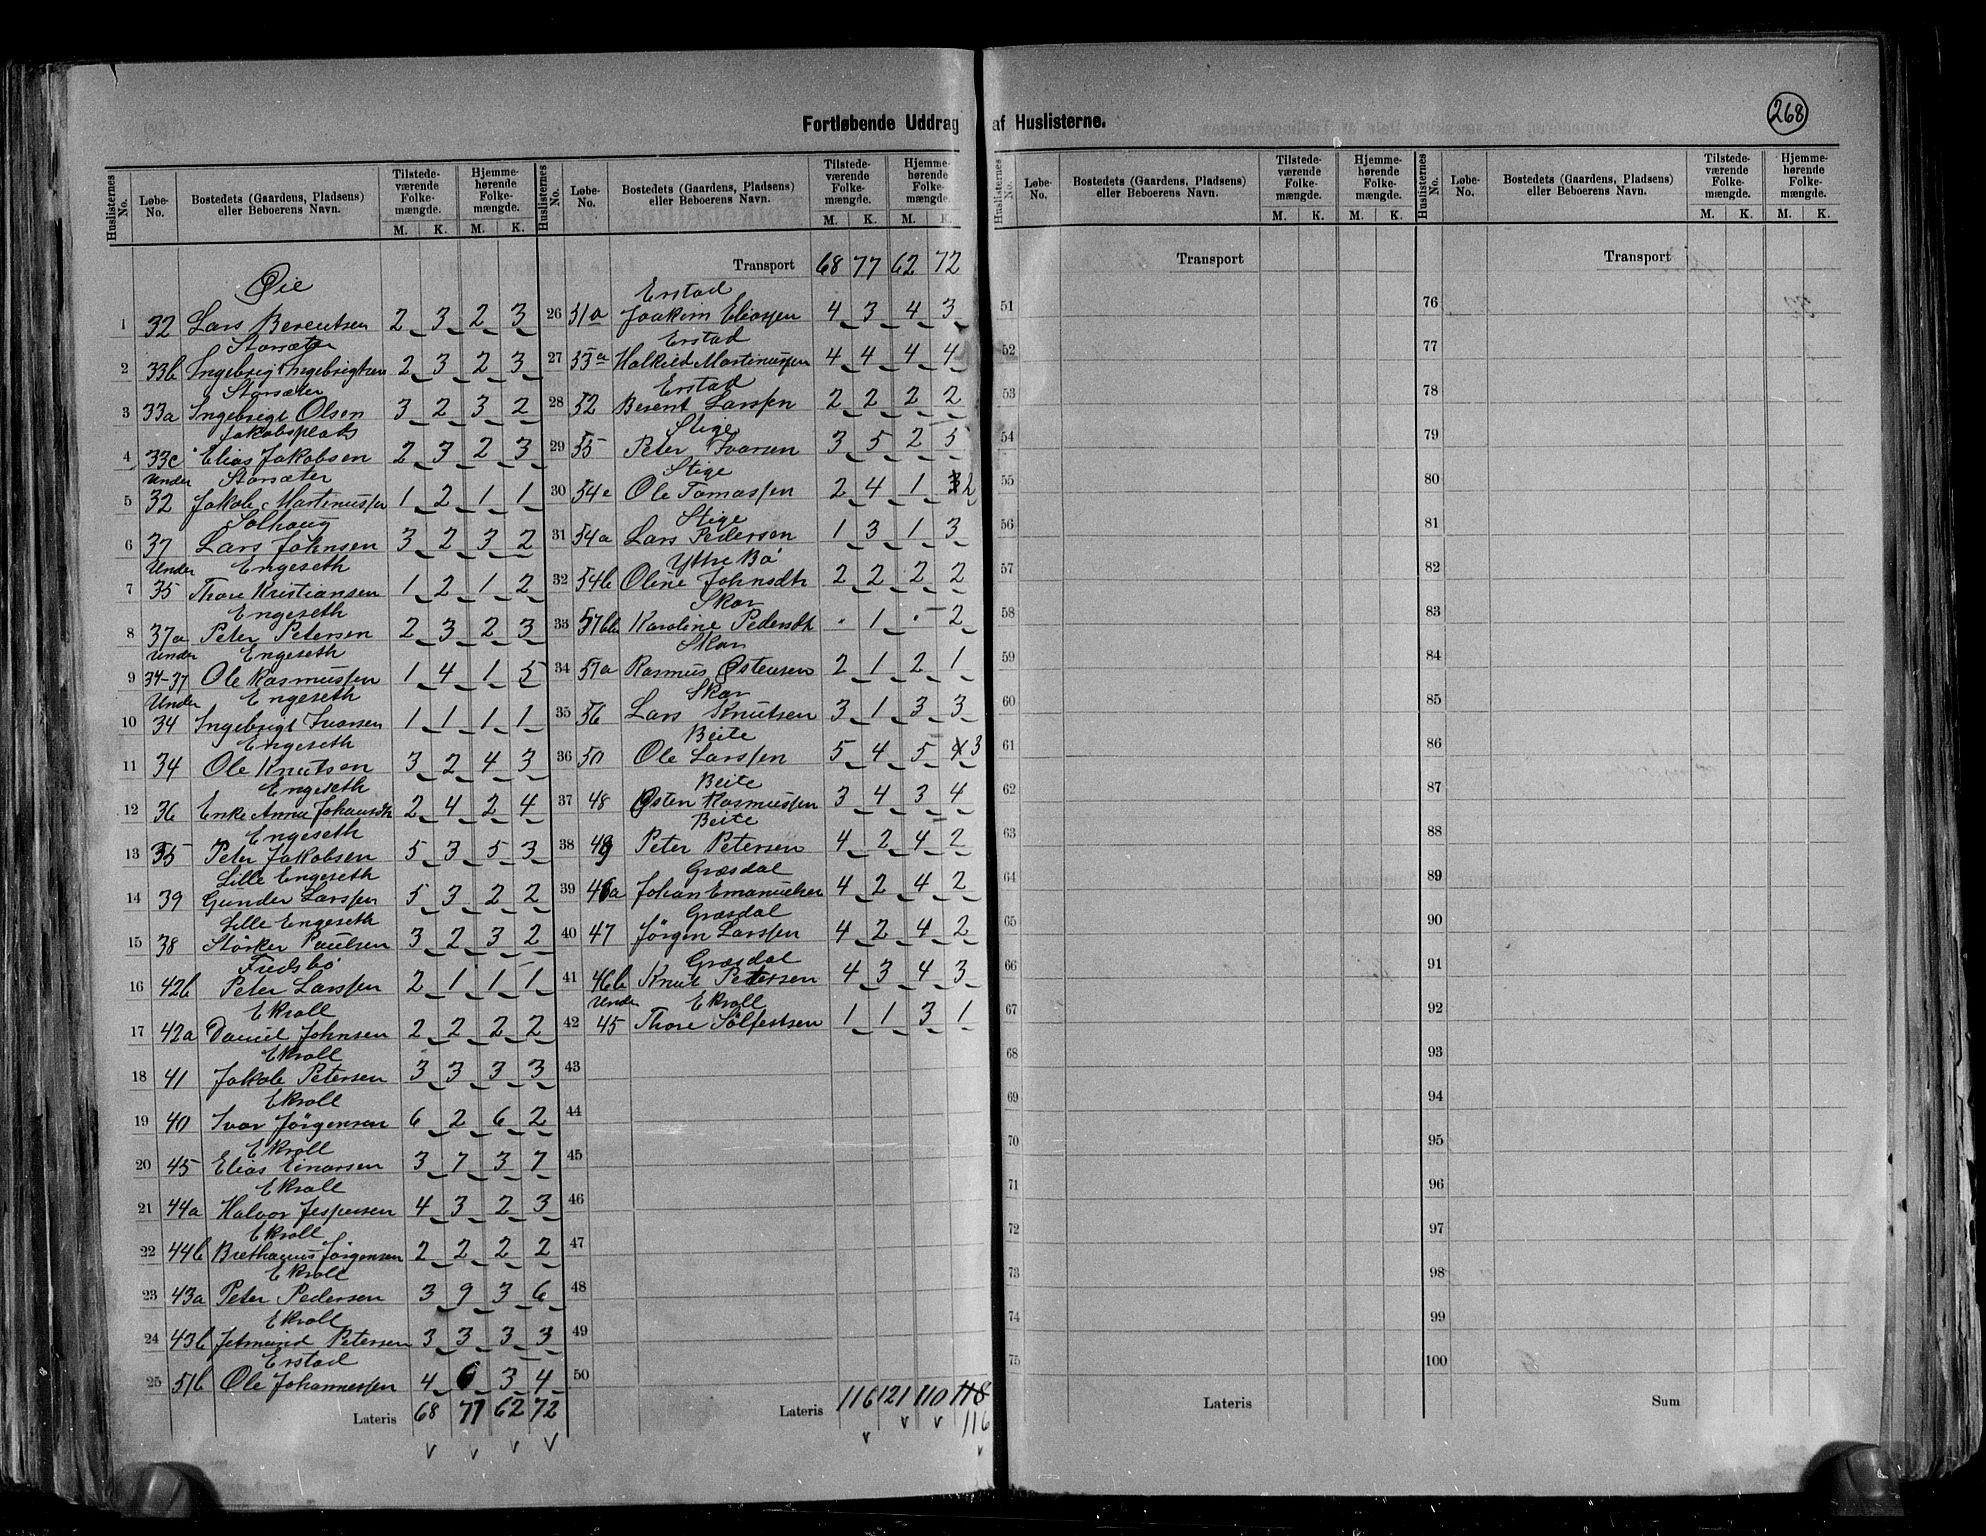 268
Fortløbende Uddrag af Huslisterne.
Huslisternes No. Løbe-No. Bostedets (Gaardens, Pladsen) eller Beboerens Navn. Tilstede-værende Folke-mængde. M. K. Hjemme-hørende Folke-mængde. M. K.
Øie
1 32 Lars Berentsen 2 3 2 3
Storsæter
2 33b Ingebrigt Ingebrigtsen 2 3 2 3
Storsæter
3 33a Ingebrigt Olsen 3 2 3 2
Jakobsplads
4 33c Elias Jakobsen 2 3 2 3
Under Storsæter
5 32 Jakob Martinussen 1 2 1 1
Solhaug
6 37 Lars Johnsen 3 2 3 2
Under Engeseth
7 35 Thore Kristiansen 1 2 1 2
Engeseth
8 37a Peter Petersen 2 3 2 3
Under Engeseth
9 34-37 Ole Rasmussen 1 4 1 5
Under Engeseth
10 34 Ingebrigt Ivarsen 1 1 1 1
Engeseth
11 34 Ole Knutsen 3 2 4 3
Engeseth
12 36 Enke Anne Johansdt 2 4 2 4
Engeseth
13 35 Peter Jakobsen 5 3 5 3
Lille Engeseth
14 39 Gunder Larssen 5 3 2 2
Lille Engeseth
15 38 Størker Paulsen 3 2 3 2
Fredsbø
16 42b Peter Larssen 2 1 1 1
Ekroll
17 42a Daniel Johnsen 2 2 2 2
Ekroll
18 41 Jakob Petersen 3 3 3 3
Ekroll
19 40 Ivar Jørgensen 6 2 6 2
Ekroll
20 45 Elias Einarsen 3 7 3 7
Ekroll
21 44a Halvor Jespersen 4 3 2 3
Ekroll
22 44b Brethanus Jørgensen 2 2 2 2
Ekroll
23 43a Peter Pedersen 3 9 3 6
Ekroll
24 43b Jetmund Petersen 3 3 3 3
Erstad
25 51b Ole Johannessen 4 6 3 4
Lateris 68 77 62 72
Huslisternes No. Løbe-No. Bostedets (Gaardens, Pladsen) eller Beboerens Navn. Tilstede-værende Folke-mængde. M. K. Hjemme-hørende Folke-mængde. M. K.
Transport 68 77 62 72
Erstad
26 51a Joakim Eliassen 4 3 4 3
Erstad
27 53a Halkild Martinussen 4 4 4 4
Erstad
28 52 Berent Larssen 2 2 2 2
Stige
29 55 Peter Ivarsen 3 5 2 5
Stige
30 54c Ole Tomassen 2 4 1 3 2
Stige
31 54a Lars Pedersen 1 3 1 3
Ytre Bø
32 54b Oline Johnsdt 2 2 2 2
Skar
33 57b Karoline Pedersdt . 1 . 2
Skar
34 57a Rasmus Østensen 2 1 2 1
Skar
35 56 Lars Knutsen 3 1 3 3
Beite
36 50 Ole Larssen 5 4 5 4 3
Beite
37 48 Østen Rasmussen 3 4 3 4
Beite
38 49 Peter Petersen 4 2 4 2
Græsdal
39 46a Johan Emanuelsen 4 2 4 2
Græsdal
40 47 Jørgen Larssen 4 2 4 2
Græsdal
41 46b Knut Petersen 4 3 4 3
Under Ekroll
42 45 Thore Sølfestsen 1 1 3 1
43
44
45
46
47
48
49
50
Lateris 116 121 110 118
116
Huslisternes No. Løbe-No. Bostedets (Gaardens, Pladsen) eller Beboerens Navn. Tilstede-værende Folke-mængde. M. K. Hjemme-hørende Folke-mængde. M. K.
Transport
51
52
53
54
55
56
57
58
59
60
61
62
63
64
65
66
67
68
69
70
71
72
73
74
75
Lateris
Huslisternes No. Løbe-No. Bostedets (Gaardens, Pladsen) eller Beboerens Navn. Tilstede-værende Folke-mængde. M. K. Hjemme-hørende Folke-mængde. M. K.
Transport
76
77
78
79
80
81
82
83
84
85
86
87
88
89
90
91
92
93
94
95
96
97
98
99
100
Sum